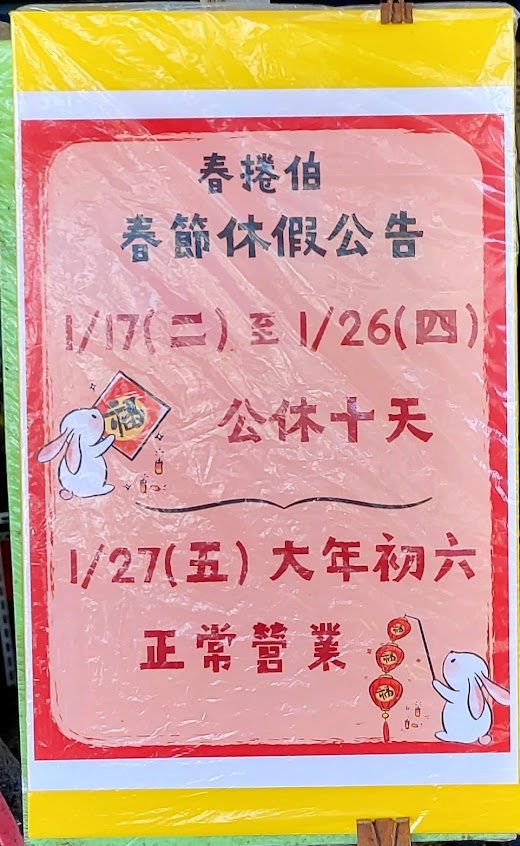 春捲伯
春節休假公告
1/17(二)至 1/26(四)
福
公休十天
1/27(五)大年初六
正常營業
福
福
福